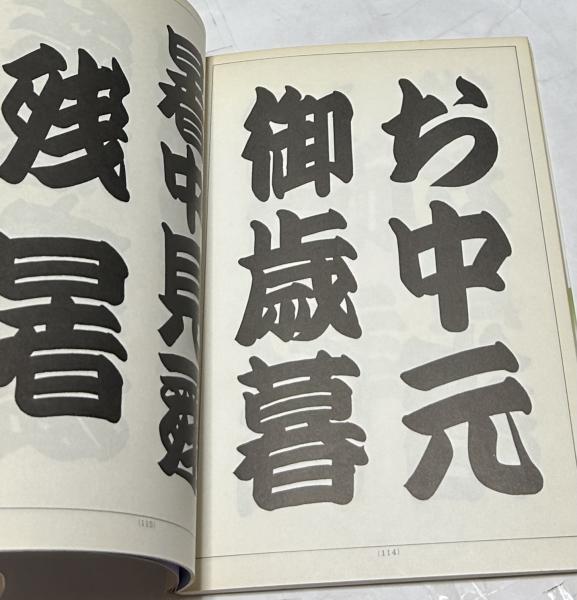 お中元
御歳暮
(114)
暑中見舞
残暑
(115)